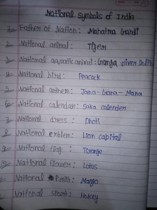 National symbols of India
Father of Nation: Mahatma Gandhi
National animal: Tiger
National aquatic animal: Ganga river
National bird: Peacock
National anthem: Jana-Gana-Mana
National calendar: Saka calendar
National dress: Dhoti
National emblem: Lion capital
National flag:
National flower: Lotus
National Fruit: Mango
National: Hockey